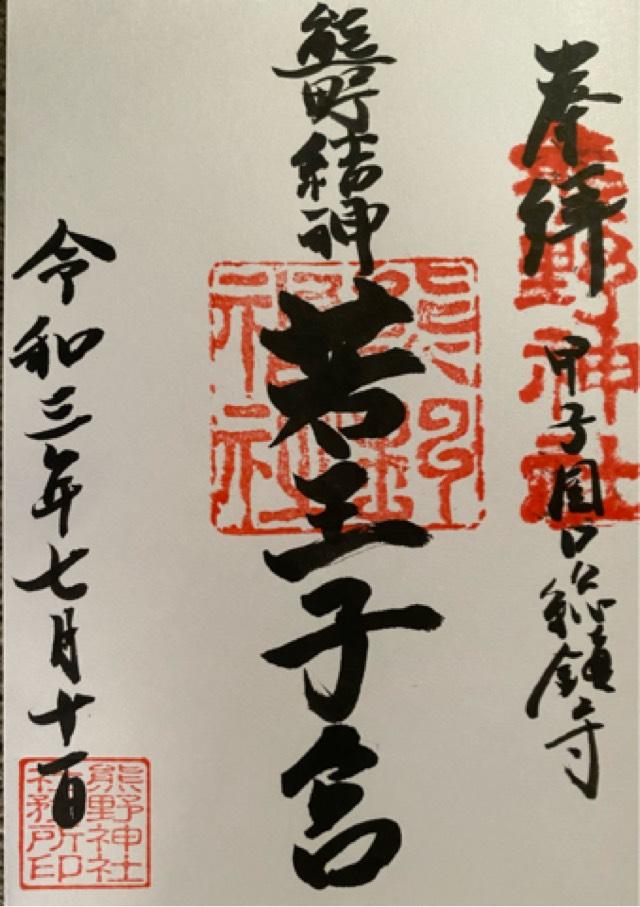 奉拝
熊野神社
甲子園口総鎮守
熊野結神
若王子宮
熊野神社
令和三年七月十一日
熊野神社
社務所印